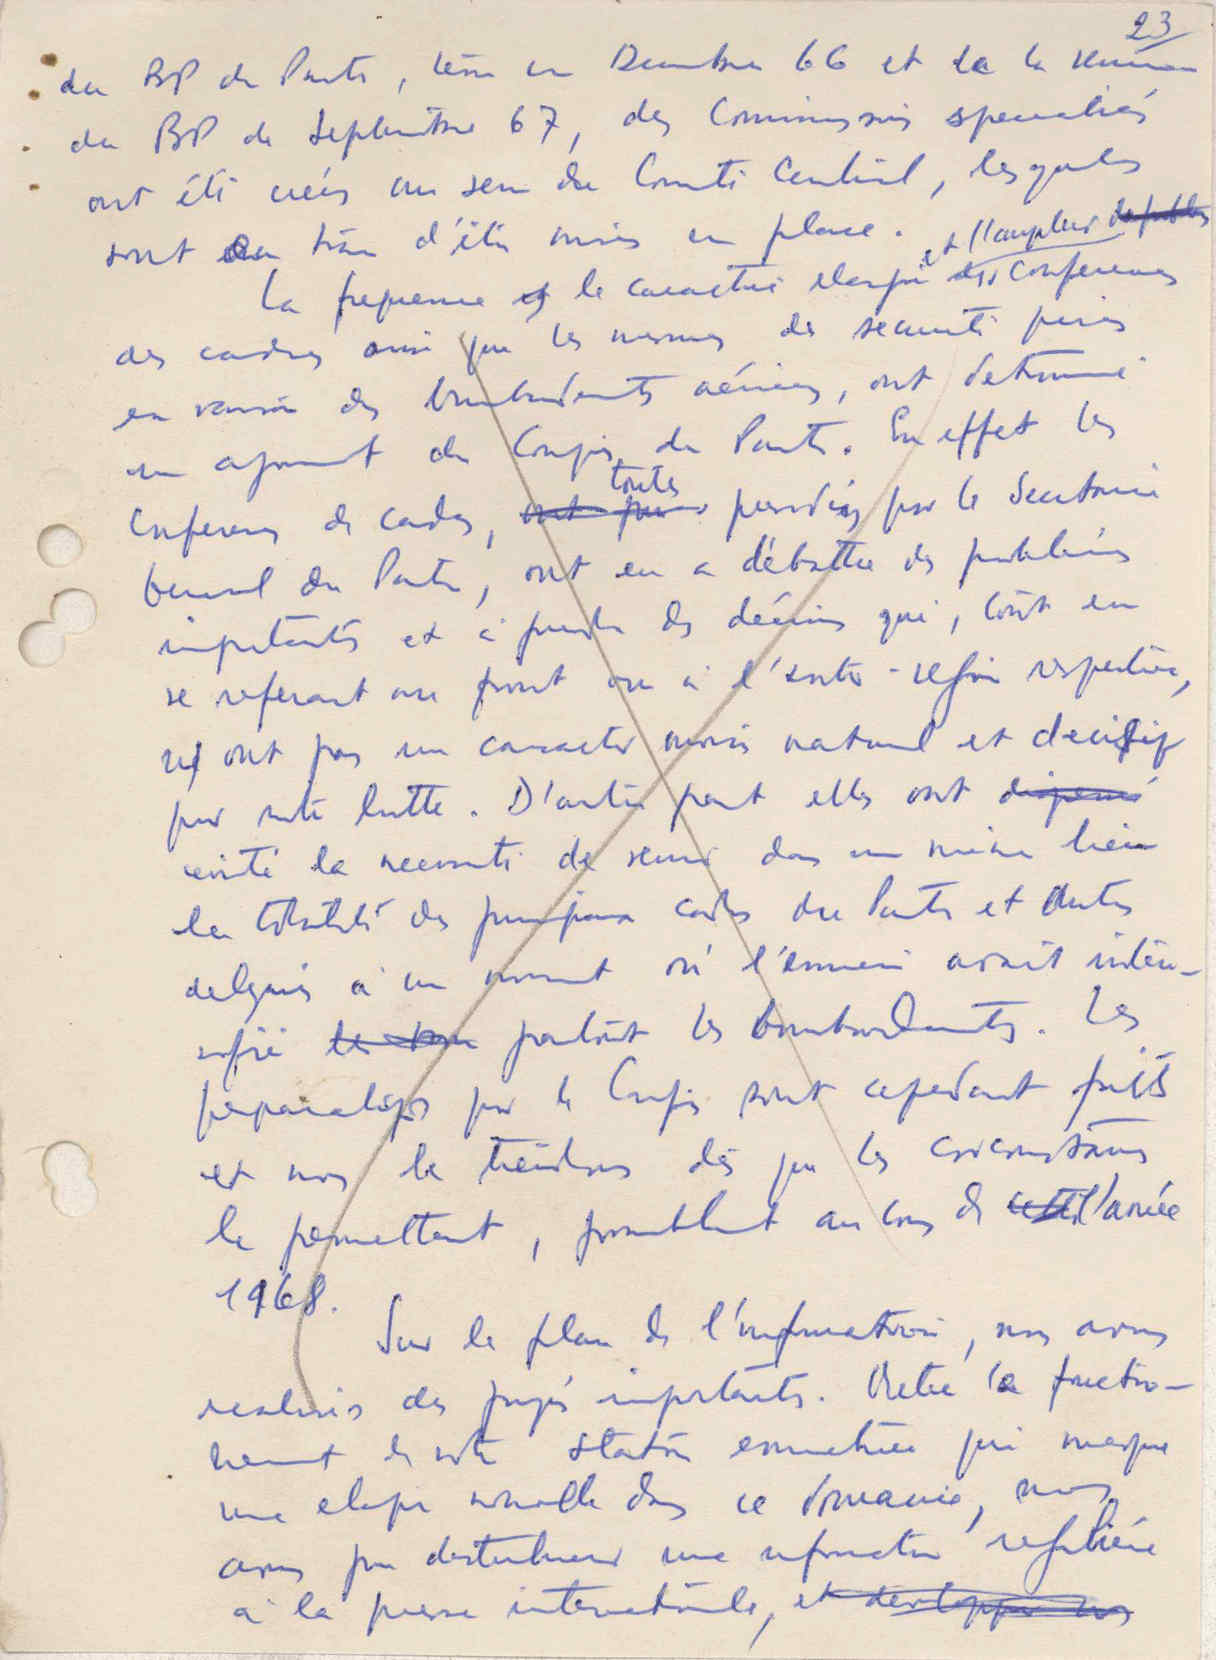 23
du BP du Parti, tenu en Decembre 66 et de la reunion
du BP de Septembre 67, des Commissions specialisés
ont été créés au sein du Comité Central, lesquels
sont en train d'être mises en place.
et l'ampleur
La frequence et le caractère elargi des Conferences
des cadres ainsi que les mesures de securité prises
en raison des bombardements aériens, ont determiné
un ajournement du Congrès du Parti. En effet les
Conferences de cadres, toutes presidées par le Secretaire
General du Parti, ont eu a débattre des problèmes
importants et à prendre des décisions qui, tout en
se referant au front ou à l'inter-région respective,
n'ont pas un caractère moins national et decisif
pour notre lutte. D'autre part elles ont
evité la necessité de reunir dans un même lieu
la totalité des principaux cadres du Parti et autres
delegués à un moment où l'ennemi avait inten-
sifié partout les bombardements. Les
preparatifs pour le Congrès sont cependant faits
et nous le tiendrons dès que les circonstances
le permettent, probablement au cours de l'année
1968.
Sur le plan de l'information, nous avons
realisés des progrès importants. Outre le fonction-
nement de notre station emettrice qui marque
une etape nouvelle dans ce domaine, nous
avons pu distribuer une information regulière
à la presse internationale, et developper nos